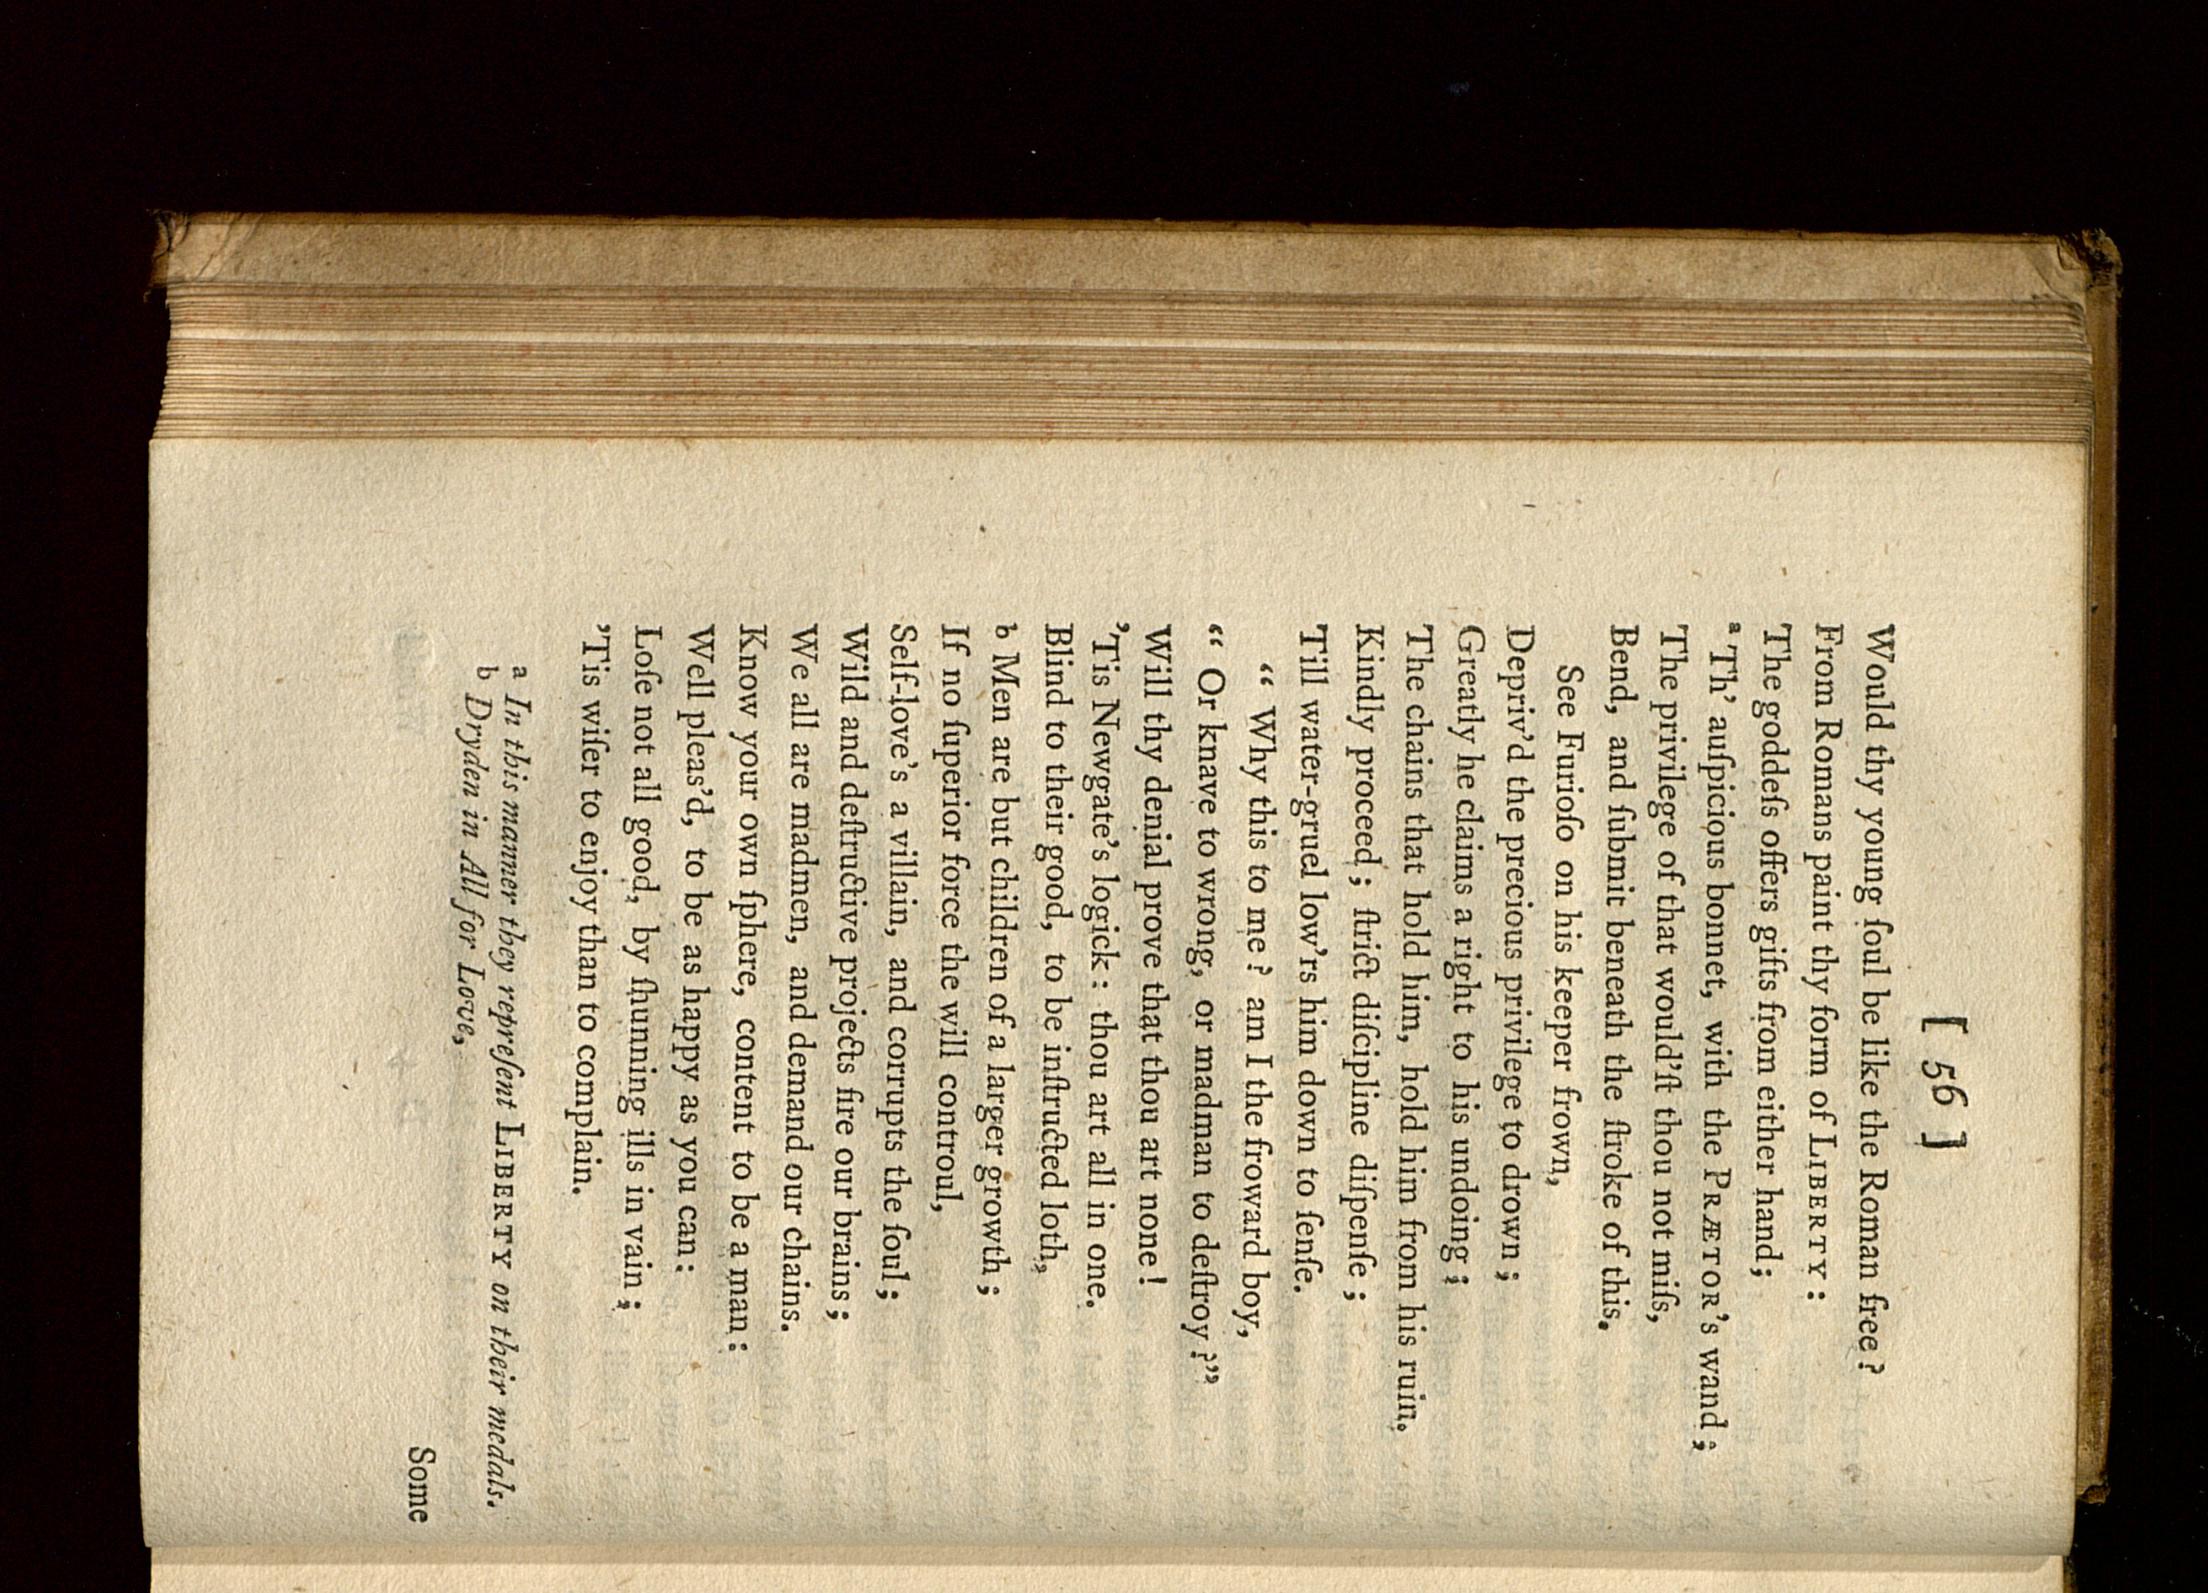 [ 56 ]
Would thy young ſoul be like the Roman free?
From Romans paint thy form of LIBERTY :
The goddeſs offers gifts from either hand;
a Th' auſpicious bonnet, with the PRÆTOR's wand;
The privilege of that would'ſt thou not miſs,
Bend, and ſubmit beneath the ſtroke of this.
See Furioſo on his keeper frown,
Depriv'd the precious privilege to drown;
Greatly he claims a right to his undoing;
The chains that hold him, hold him from his ruin.
Kindly proceed; ſtrict diſcipline diſpenſe;
Till water-gruel low'rs him down to ſenſe.
“ Why this to me? am I the froward boy,
“ Or knave to wrong, or madman to deſtroy?”
Will thy denial prove that thou art none!
'Tis Newgate's logick: thou art all in one.
Blind to their good, to be inſtructed loth,
b Men are but children of a larger growth;
If no ſuperior force the will controul,
Self-love's a villain, and corrupts the ſoul;
Wild and deſtructive projects fire our brains;
We all are madmen, and demand our chains.
Know your own ſphere, content to be a man:
Well pleas'd, to be as happy as you can:
Loſe not all good, by ſhunning ills in vain;
'Tis wiſer to enjoy than to complain.
a In this manner they repreſent LIBERTY on their medals.
b Dryden in All for Love,
Some